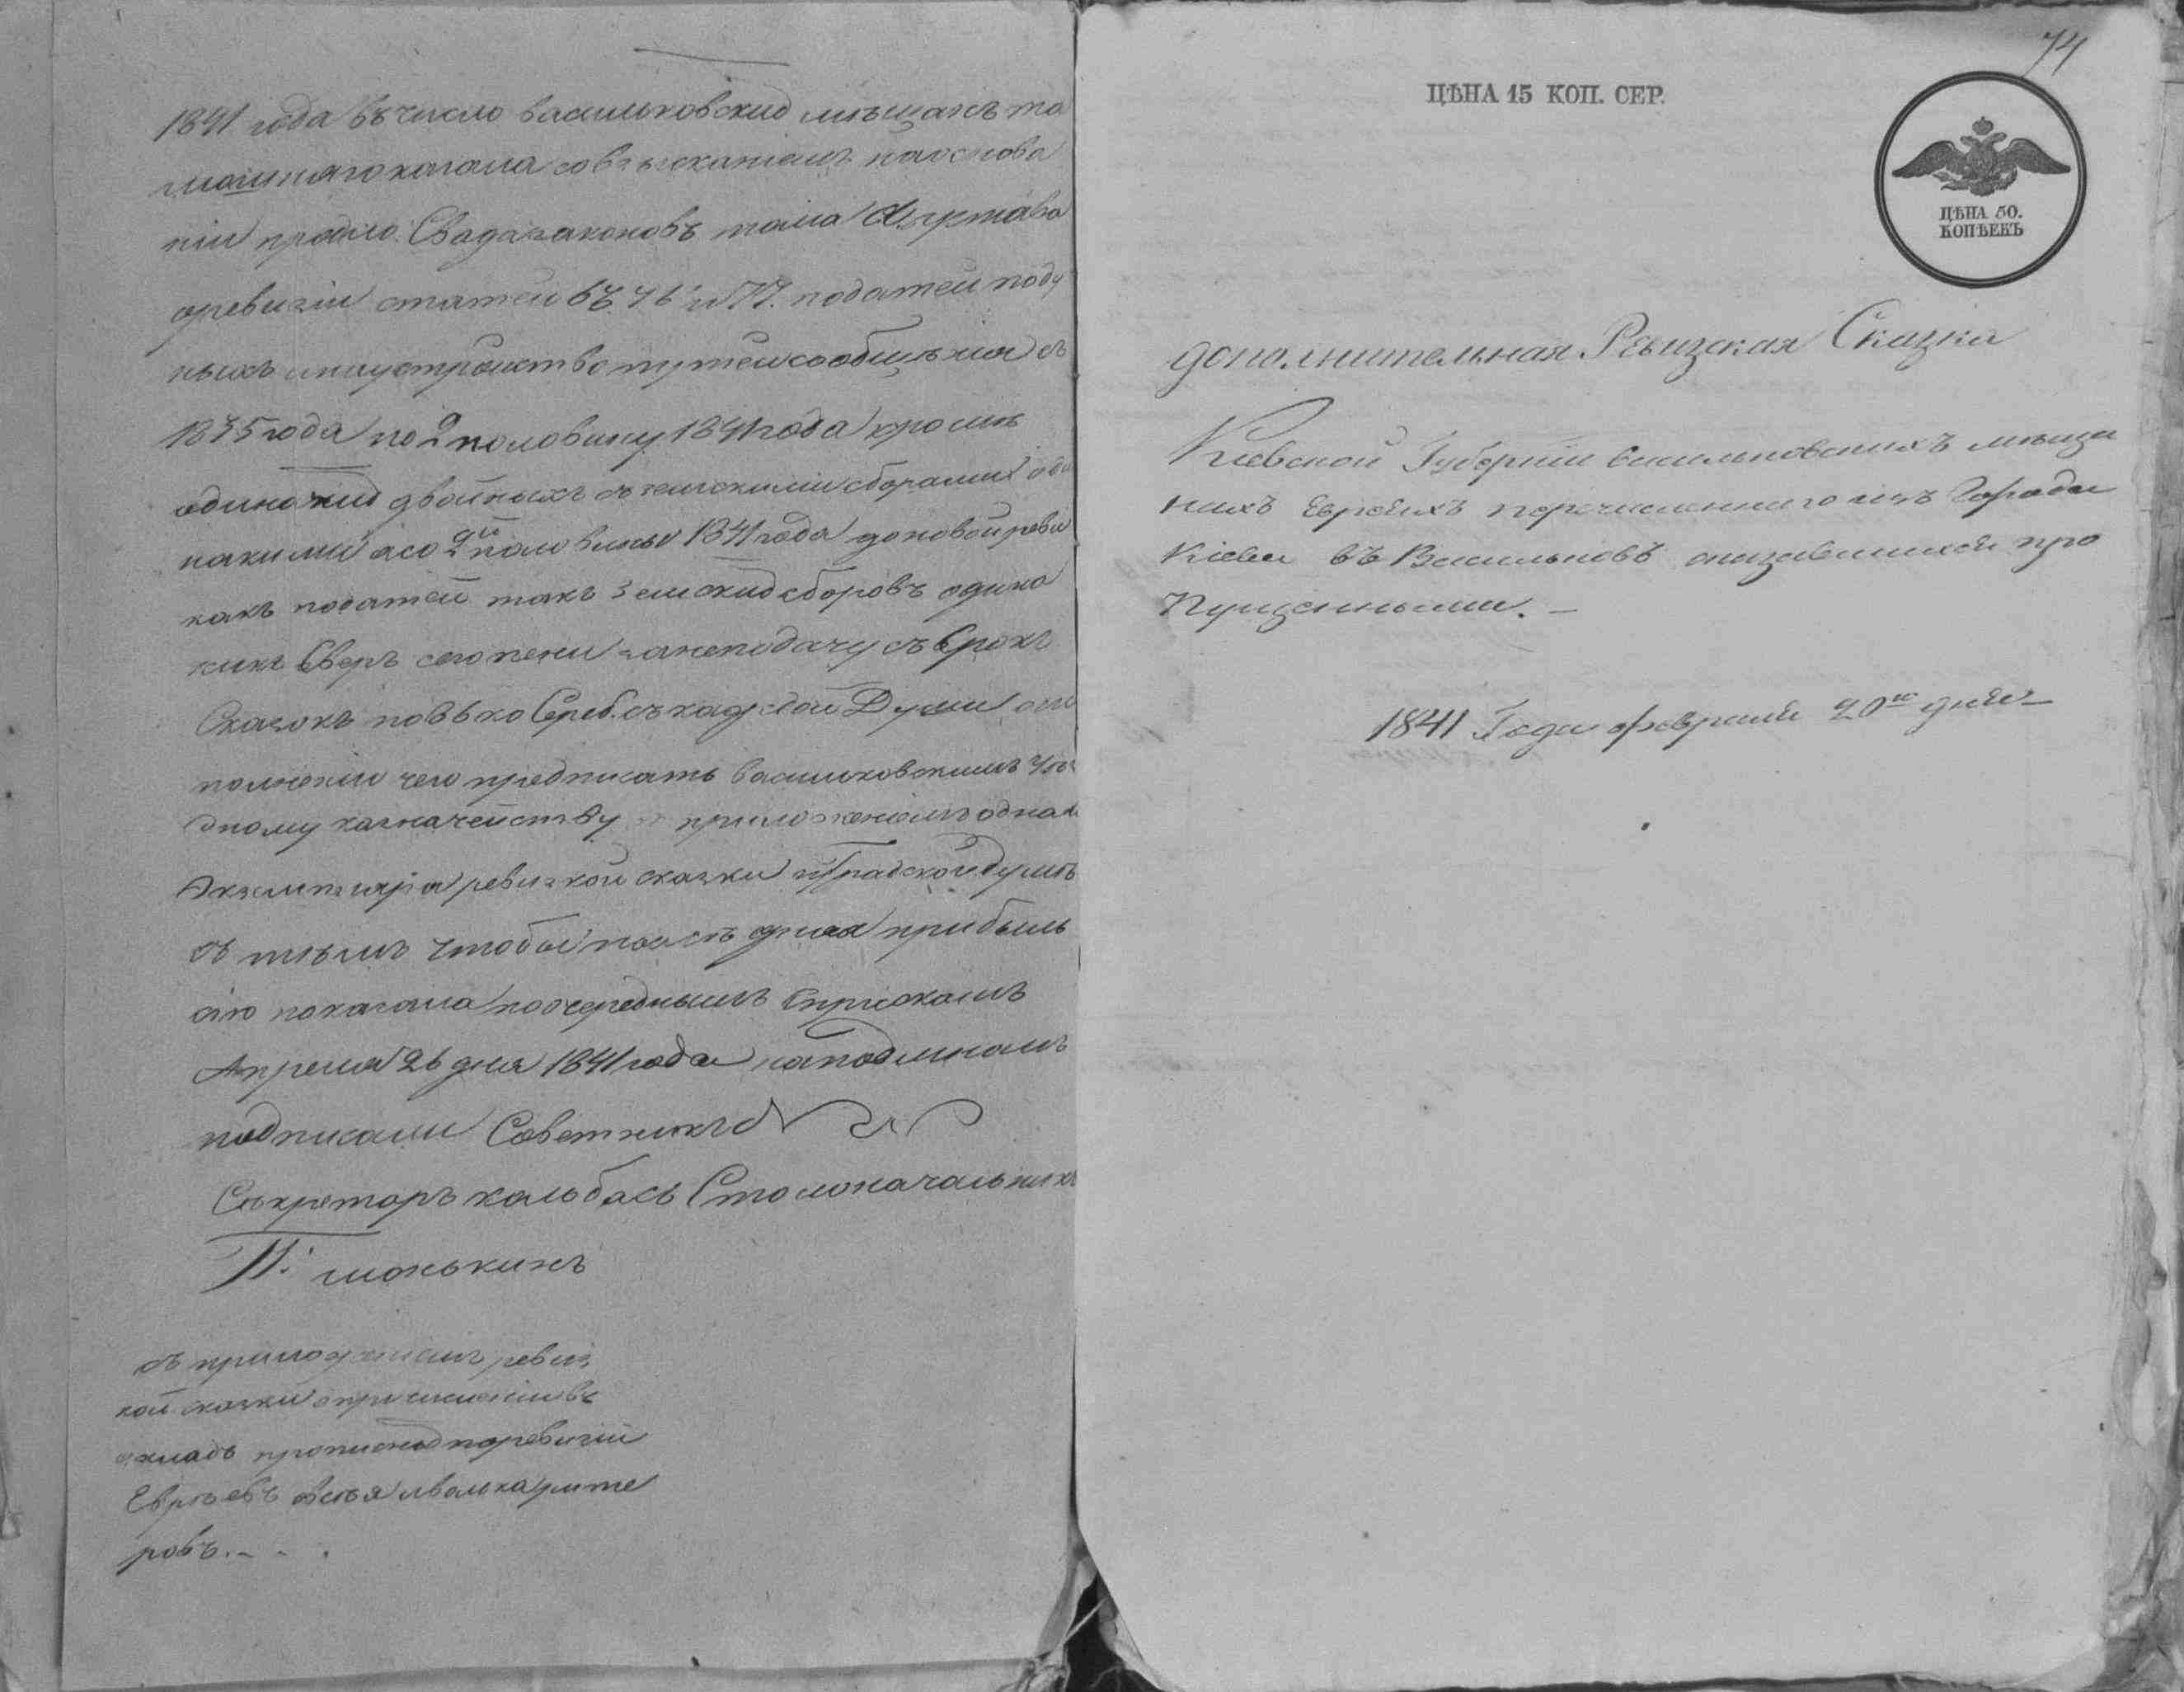 1841 года въ число васильковскихъ мѣщанъ та
мошняго кагала со взысканіемъ на основа
ніи продол. Свода законовъ тома устава
о ревизіи статей 76 и 77. податей поду
ныхъ и на устройство путей сообщенія съ
1835 года по 2 половину 1841 года кромѣ
одинакихъ двойныхъ съ земскими сборами оди
накими а со 2й половины 1841 года до новой реви
какъ податей такъ земскихъ сборовъ одина
кихъ Сверхъ сего пени за неподачу въ Срокъ
Сказокъ по Сереб. съ каждой Души о
полненіи чего предписать Васильковскимъ Уѣз
дному казначейству приложеніемъ одном
Экземпляра ревизкой сказки и Градской думѣ
съ тѣмъ чтобы прибыль
сію показала по очереднымъ Спискамъ
Апреля 26 дня 1841 года на подлиномъ
подписали Советникъ
Секретарь кальбась Столоначальникъ
П: монькинъ
съ приложеніемъ ревиз
кой сказки о причисленіи въ
окладъ пропис по ревизіи
Евреевъ
ровъ. - - .
74
ЦѢНА 15 КОП. СЕР.
ЦѢНА 50.
КОПѢЕКЪ
дополнительная Ревизская Сказка
Кіевской Губерніи Васильковскихъ мѣща
нахъ Евреяхъ перечисленнаго изъ Города
Кіева въ Васильковъ оказавшихся про
Пущенными. -
1841 Года февраля 20го дня -